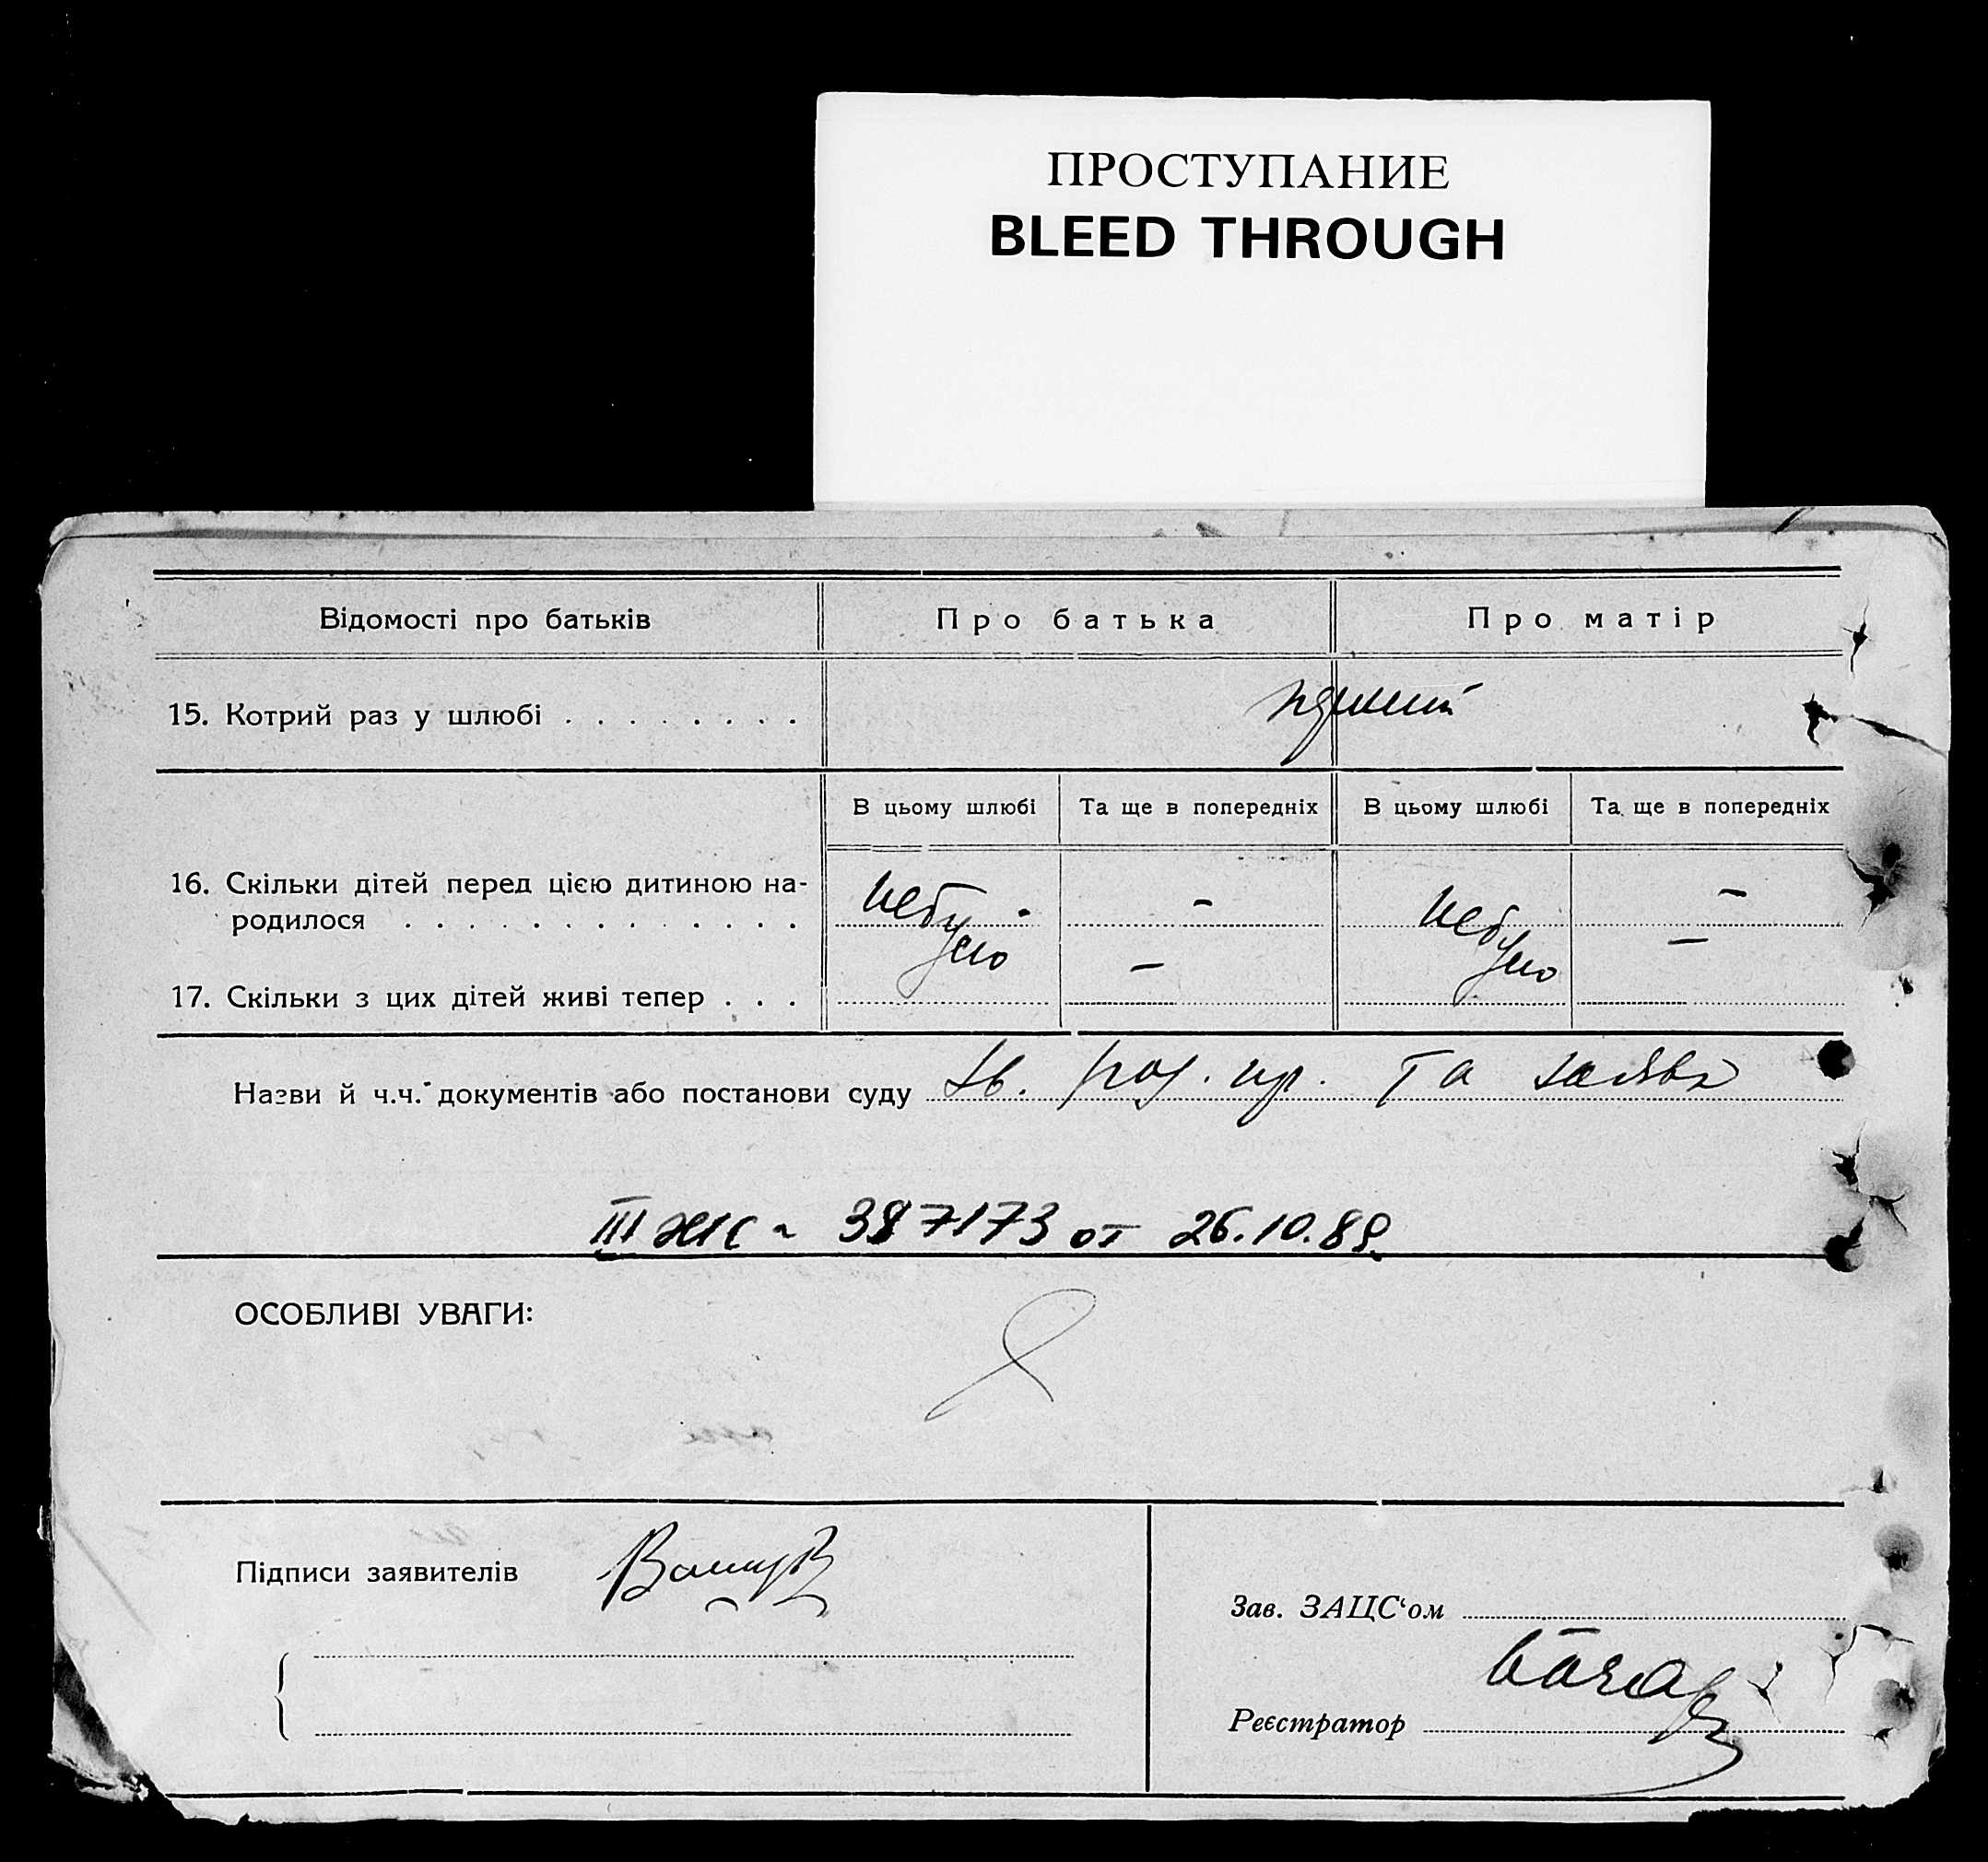 ПРОСТУПАНИЕ
BLEED THROUGH
Відомості про батьків Про батька Про матір
15. Котрий раз у шлюбі . . . . . . . .
В цьому шлюбі Та ще в попередніх В цьому шлюбі Та ще в попередніх
16. Скільки дітей перед цією дитиною на-
родилося . . . . . . . . . . . . небуло - небуло -
17. Скільки з цих дітей живі тепер . . . - -
Назви й ч.ч. документів або постанови суду та заява
387173 от 26.10.89
ОСОБЛИВІ УВАГИ:
Підписи заявителів
Зав. ЗАЦС‘ом
Реєстратор